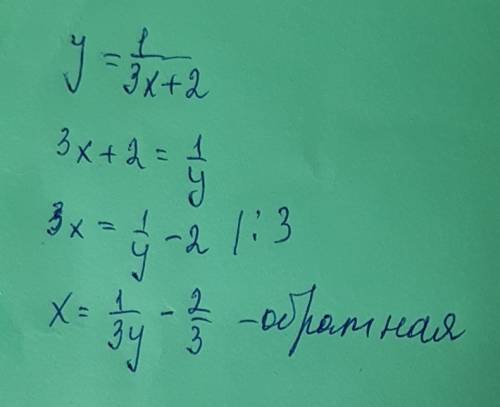 y = 1/(3x+2)
3x + 2 = 1/y
3x = 1/y - 2 |:3
x = 1/(3y) - 2/3 - обратная